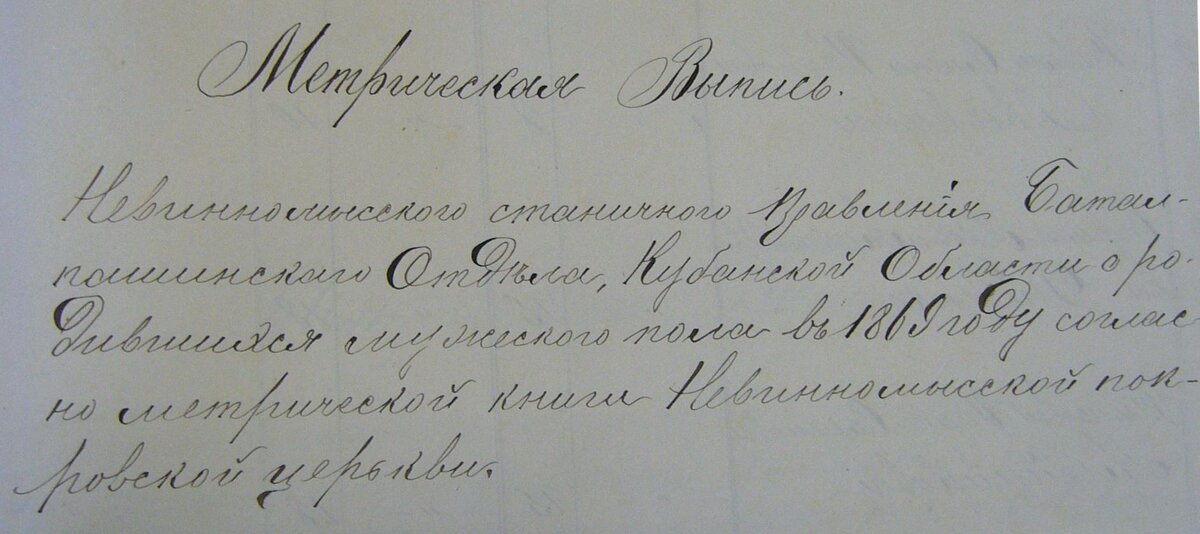 Метрическая Выпись.
Невинномысского станичного Правленія Батал-
пашинскаго Отдѣла, Кубанской Области о ро-
дившихся мужеского пола въ 1869 году соглас-
но метрической книги Невинномысской пок-
ровской церькви.